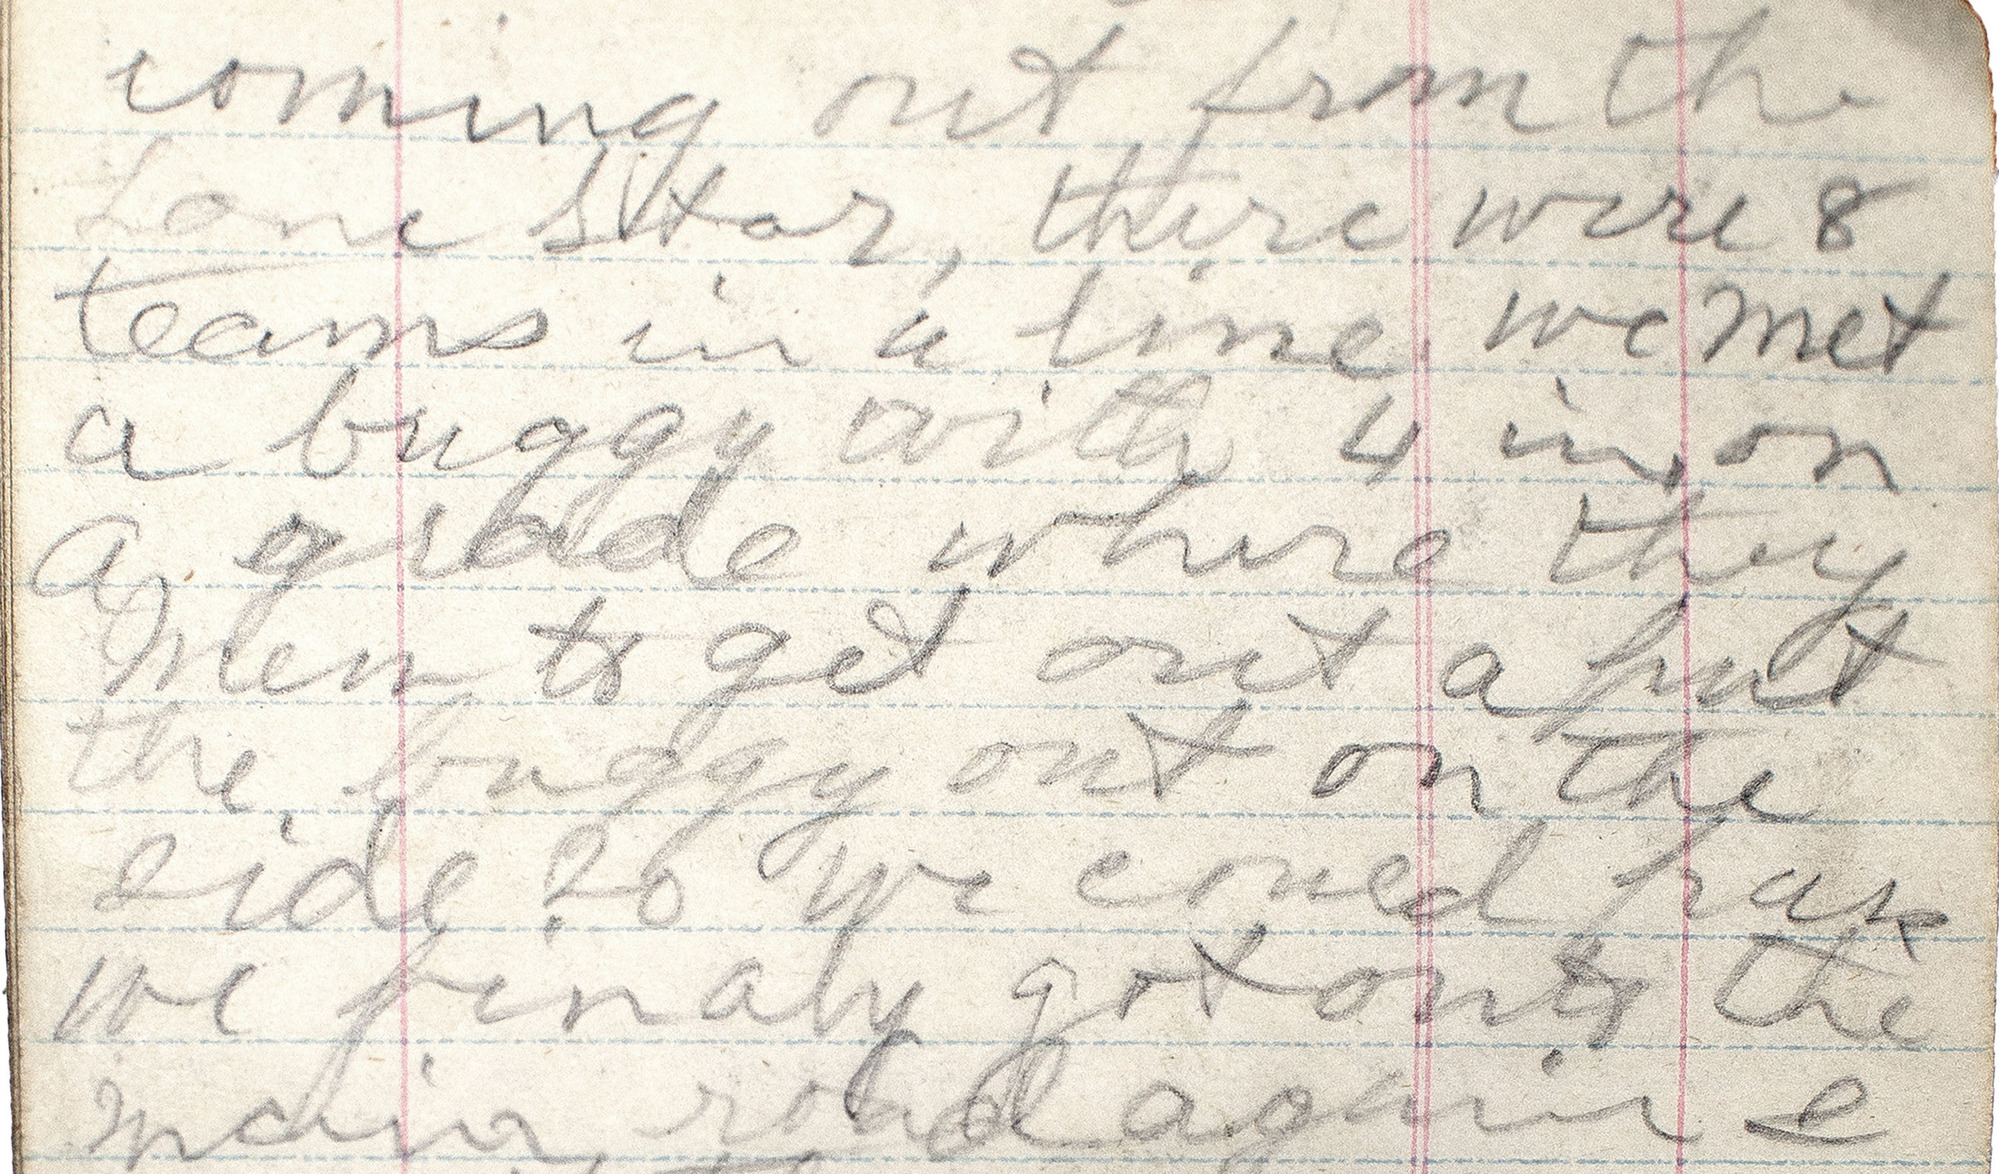 coming out from the
Lone Star, there were 8
teams in a line. we met
a buggy with 4 in, on
a grade where they
Men to get out a put
the buggy out on the
side so we coued pass
we finaly got onto the
main road again &